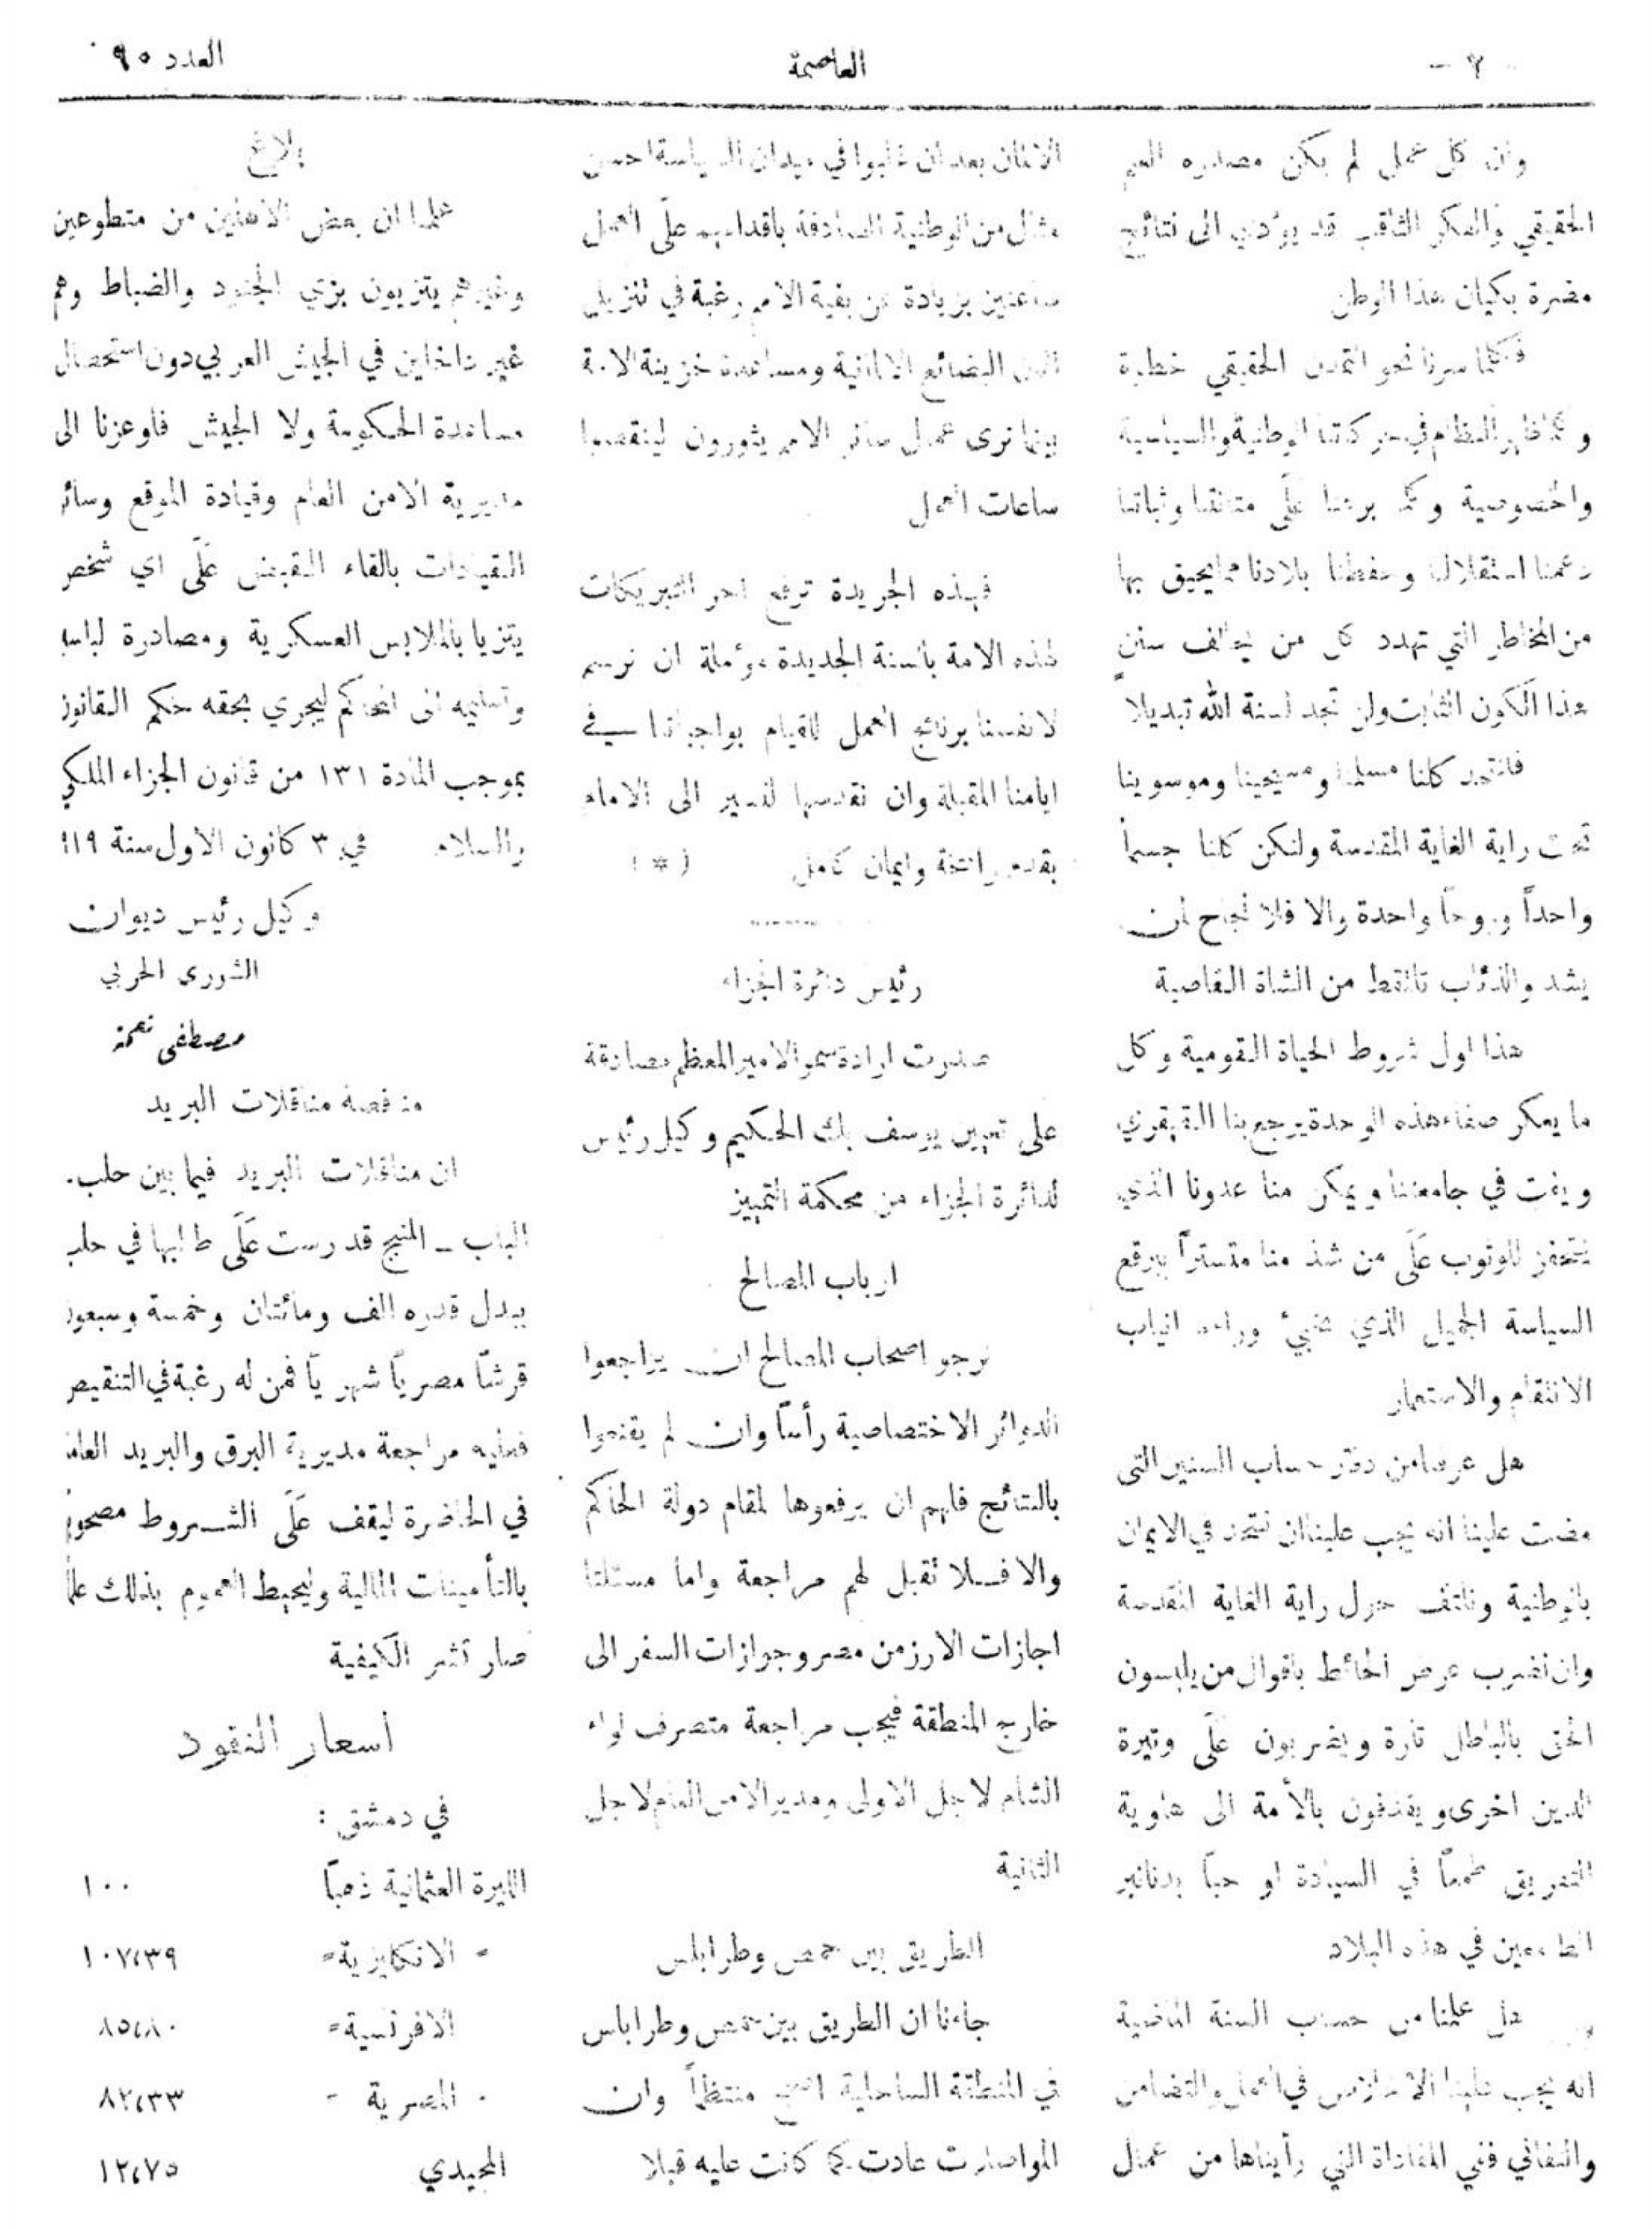 العدد ٩٥
العاصمة
- ٢ -
وان كل عمل لم يكن مصدره العلم
الحقيقي والفكر الثاقب قد يؤدي الى نتائج
مضرة بكيان هذا الوطن
فكلما سرنا نحو التمدن الحقيقي خطوة
وكلما ظهر النظام في حركاتنا الوطنية والسياسية
والخصوصية وكلما برهنا على متانتنا وثباتنا
دعمنا استقلالنا وحفظنا بلادنا مما يحيق بها
من المخاطر التي تهدد كل من يخالف سنن
هذا الكون الثابت ولن تجد لسنة الله تبديلاً
فلنتحد كلنا مسلمنا ومسيحينا وموسوينا
تحت راية الغاية المقدسة ولنكن كلنا جسماً
واحداً وروحاً واحدة والا فلا نجاح لمن
يشذ والذئاب تلتقط من الشاة القاصية
هذا اول شروط الحياة القومية وكل
ما يعكر صفاء هذه الوحدة يرجع بنا القهقري
ويفت في جامعتنا ويمكن منا عدونا الذي
يتحفز للوثوب على من شذ منا متستراً ببرقع
السياسة الجميل الذي يخبئ وراءه انياب
الانتقام والاستعمار
هل عرفنا من دفتر حساب السنين التى
مضت علينا انه يجب علينا ان نتحد في الايمان
بالوطنية ونلتف حول راية الغاية المقدسة
وان نضرب عرض الحائط باقوال من يلبسون
الحق بالباطل تارة ويضربون على وتيرة
الدين اخرى ويقذفون بالأمة الى هاوية
التفريق طمعاً في السيادة او حباً بدنانير
الطامعين في هذه البلاد
هل علمنا من حساب السنة الماضية
انه يجب علينا الاخلاص في العمل والتضامن
والتفاني ففي المفاداة التي رأيناها من عمال
الالمان بعد ان غلبوا في ميدان السياسة احسن
مثال من الوطنية الصادقة باقدامهم على العمل
ساعتين بزيادة عن بقية الامم رغبة في تنزيل
اثمان البضائع الالمانية ومساعدة خزينة الامة
بينما نرى عمال سائر الامم يثورون لينقصوا
ساعات العمل
فهذه الجريدة ترفع احر التبريكات
لهذه الامة بالسنة الجديدة مؤملة ان نرسم
لانفسنا برنامج العمل للقيام بواجباتنا في
ايامنا المقبلة وان نقدسها لنسير الى الامام
بقدم راسخة وايمان كامل ( * )
رئيس دائرة الجزاء
صدرت ارادة سمو الامير المعظم مصادقة
على تعيين يوسف بك الحكيم وكيل رئيس
لدائرة الجزاء من محكمة التمييز
ارباب المصالح
نرجو اصحاب المصالح ان يراجعوا
الدوائر الاختصاصية رأساً وان لم يقنعوا
بالنتائج فلهم ان يرفعوها لمقام دولة الحاكم
والا فلا تقبل لهم مراجعة واما مسئلتا
اجازات الارز من مصر وجوازات السفر الى
خارج المنطقة فيجب مراجعة متصرف لواء
الشام لاجل الاولى ومدير الامن العام لاجل
الثانية
الطريق بين حمص وطرابلس
جاءنا ان الطريق بين حمص وطرابلس
في المنطقة الساحلية اصبح منتظماً وان
المواصلات عادت كما كانت عليه قبلا
بلاغ
علمنا ان بعض الاهلين من متطوعين
وغيرهم يتزيون بزي الجنود والضباط وهم
غير داخلين في الجيش العربي دون استحصال
مساعدة الحكومة ولا الجيش فاوعزنا الى
مديرية الامن العام وقيادة الموقع وسائر
القيادات بالقاء القبض على اي شخص
يتزيا بالملابس العسكرية ومصادرة لباسه
وتسليمه الى المحاكم ليجري بحقه حكم القانون
بموجب المادة ١٣١ من قانون الجزاء الملكي
والسلام في ٣ كانون الاول سنة ٩١٩
وكيل رئيس ديوان
الشورى الحربي
مصطفى نعمة
مناقصة مناقلات البريد
ان مناقلات البريد فيما بين حلب.
الباب - المنبج قد رست على طالبها في حلب
ببدل قدره الف ومائتان وخمسة وسبعون
قرشاً مصرياً شهرياً فمن له رغبة في التنقيص
فعليه مراجعة مديرية البرق والبريد العامة
في الحاضرة ليقف على الشروط مصحوباً
بالتأمينات المالية وليحيط العموم بذلك علماً
صار نشر الكيفية
أسعار النقود
في دمشق :
الليرة العثمانية ذهباً ١٠٠
= الانكليزية = ١٠٧،٣٩
الافرنسية = ٨٥،٨٠
المصرية - ٨٢،٣٣
المجيدي ١٢،٧٥